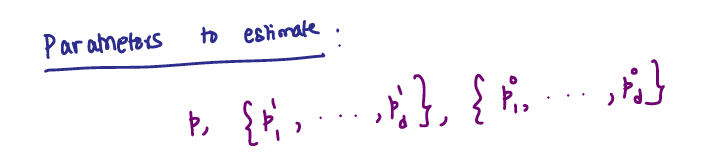 Parameters to estimate :
p, {p₁¹, . . . , p_d¹}, { p₁⁰, . . . , p_d⁰}